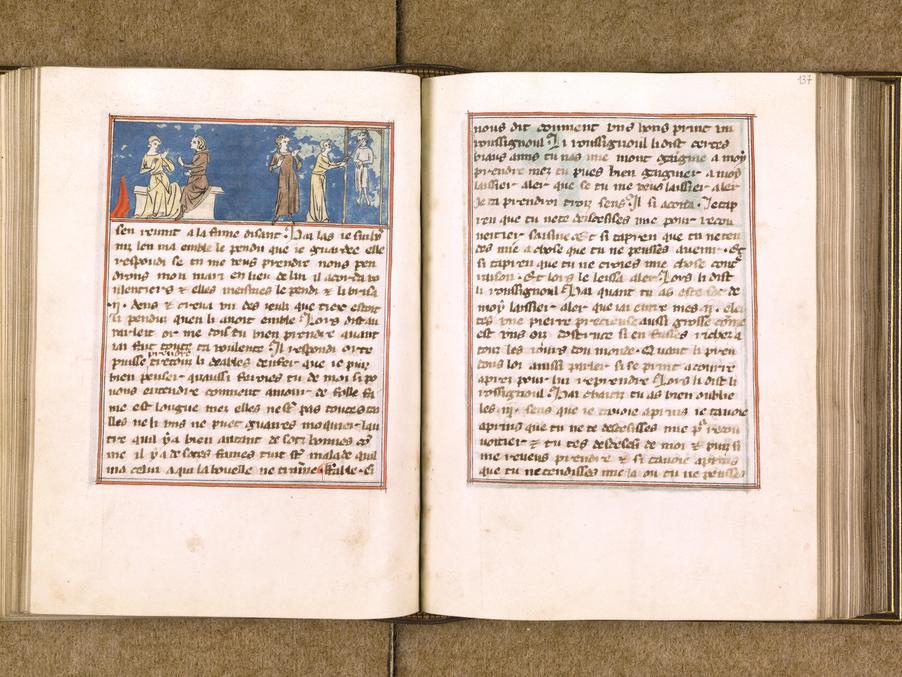 sen reuint a la fame disant
ml len ma emble le pendu que ie guardee elle
respondi se tu me veus prendre nous pen
drons mon mari en lieu de lui il acorda vo
lentiers & elles meismes le pendi & li brisa
.ij. dens & creua un des ieulz que ciex estoit
li pendu quen li auoit emble Lors dist au
or me dois tu bien prendre quant
iai fait toute ta voulente Il respondi
puisse prendre li deables denfer que ie puis
bien penser quaussi feroies tu de moi si po
uons entendre comment amour de folle fa
me est longue mes elles nest pas toutes ta
lles ne li uns ne puet guaires moquier lau
tre quil y a bien autant de sotz hommes com
me il y a de sotes fames tuit sont malade quil
ma celui a qui la bouelle ne
137
nous dit comment uns hons prinst un
roussignoul Li roussignoul li dist certes
biaus amis tu nas mie mont gaigne a moy
prendre mez tu pues bien gaignier a moy
laissier aler que se tu me veus laissier aler
ie ta prendroi troiz sens Il si acorda Je tap
ren que tu ne te dessesises mie pour recou
uerier saisine Et si tapren que tu ne ten
des mie a chose que tu ne peusses auenir Et
si tapren que tu ne croies mie chose contre
raison Et lors le leissa aler Lors li dist
li roussignoul Hai quant tu as este fol de
moy laissier aler que iai entre mes .ij. eles
une pierre precieuse aussi grosse comme
est uns oes dostruce si en fusses riches a
touz les iours du monde Quant li preu
dons loi ainssi parler si se prinst a courre
apres pour lui reprendre Lors li dist li
rossignoul Hai chaitiz tu as bien oublie
les .iij. sens que ie tauoie aprins ie tauoie
aprins que tu ne te dessesisses mie pour recou
uerier & tu tes dessesesi de moi & puis si
me reueus prendre & si tauoie aprins
que tu ne tendisses mie la ou tu ne peusses